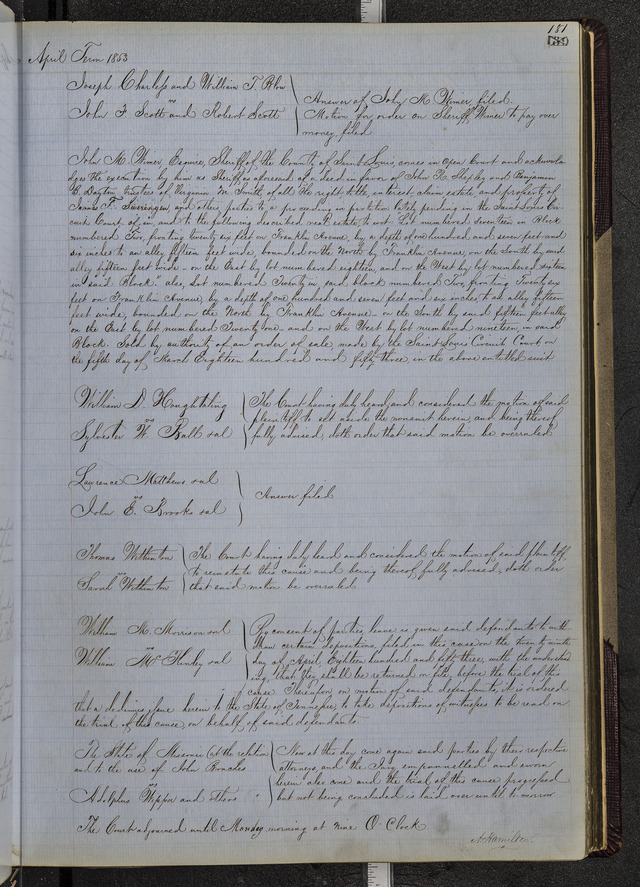 181
April Term 1853
Joseph Charless and William T. Blow
vs
John F Scott and Robert Scott
Answer of John M. Wimer filed.
Motion for order on Sheriff Wimer to pay over
money filed
John M. Wimer Esquire, Sheriff of the County of Saint Louis, comes in open Court and acknowle
dges the execution by him as Sheriff aforesaid of a deed in favor of John R. Shepley and Benjamin
B. Dayton, trustees of Virginia M. Smith, of all the right title, interest claim estate and property of
James T. Swearingen, and other parties to a proceeding in partition lately pending in the Saint Louis Cir
cuit Court of, in and to the following described real estate, to wit. Lot numbered seventeen in Block
numbered Two, fronting twenty six feet on Franklin Avenue, by a depth of one hundred and seven feet and
six inches to an alley fifteen feet wide, bounded on the North by Franklin Avenue, on the South by said
alley fifteen feet wide - on the East by lot numbered eighteen, and on the West by lot numbered sixteen
in said Block. also, Lot numbered Twenty in said block numbered Two, fronting Twenty six
feet on Franklin Avenue, by a depth of one hundred and seven feet and six inches, to an alley fifteen
feet wide, bounded on the North by Franklin Avenue - on the South by said fifteen feet alley
on the East by lot numbered Twenty One - and on the West by lot numbered nineteen, in said
Block. Sold by authority of an order of sale, made by the Saint Louis Circuit Court on
the fifth day of March Eighteen hundred and fifty three, in the above entitled suit
William D. Houghtaling
vs
Sylvester W. Ball et al
The Court having duly heard and considered the motion of said
plaintiff to set aside the nonsuit herein, and being thereof
fully advised, doth order that said motion be overruled
Lawrence Matthews et al
vs
John E. Brooks et al
Answer filed
Thomas Withinton
vs
Withinton
The Court having duly heard and considered the motion of said plaintiff
to reinstate this cause and being thereof fully advised, doth order
that said motion be overruled
William M. Morrison et al
vs
William et al
By consent of parties, leave is given said defendants to with
draw certain depositions, filed in this case on the twenty ninth
day of April, Eighteen hundred and fifty three, with the understand
ing, that they shall be returned on file, before the trial of this
cause. Thereupon on motion of said defendants, it is ordered
that a dedimus issue herein to the State of Tennessee, to take depositions of witnesses to be read on
the trial of this cause, on behalf of said defendants.
The State of Missouri (at the relation
and to the use of John
vs
Adolphus and others
Now at this day come again said parties by their respective
attorneys, and the Jury empannelled and sworn
herein also come and the trial of this cause progressed
but not being concluded is laid over until tomorrow
The Court adjourned until Monday morning at nine O'Clock
A. Hamilton